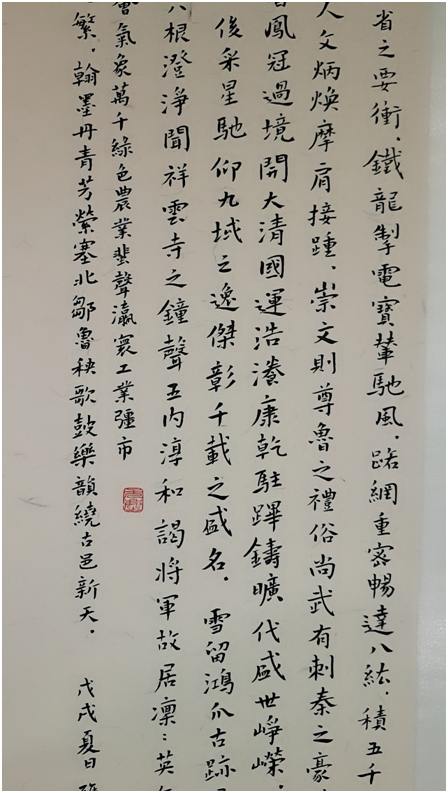 省之要衝，鐵龍掣電寶輦馳風，路網重密暢達八紘，積五千
人文炳煥摩肩接踵，崇文則尊魯之禮俗尚武有刺秦之豪
鳳冠過境開大清國運浩瀁康乾駐蹕鑄曠代盛世崢嶸，
俊采星馳仰九域之逸傑彰千載之盛名，雪留鴻爪古跡
八根澄淨聞祥雲寺之鐘聲五内淳和謁將軍故居凜：英
氣象萬千綠色農業蜚聲瀛寰工業彊市
繁，翰墨丹青芳縈塞北鄒魯秧歌鼓樂韻繞古邑新天，戊戌夏日